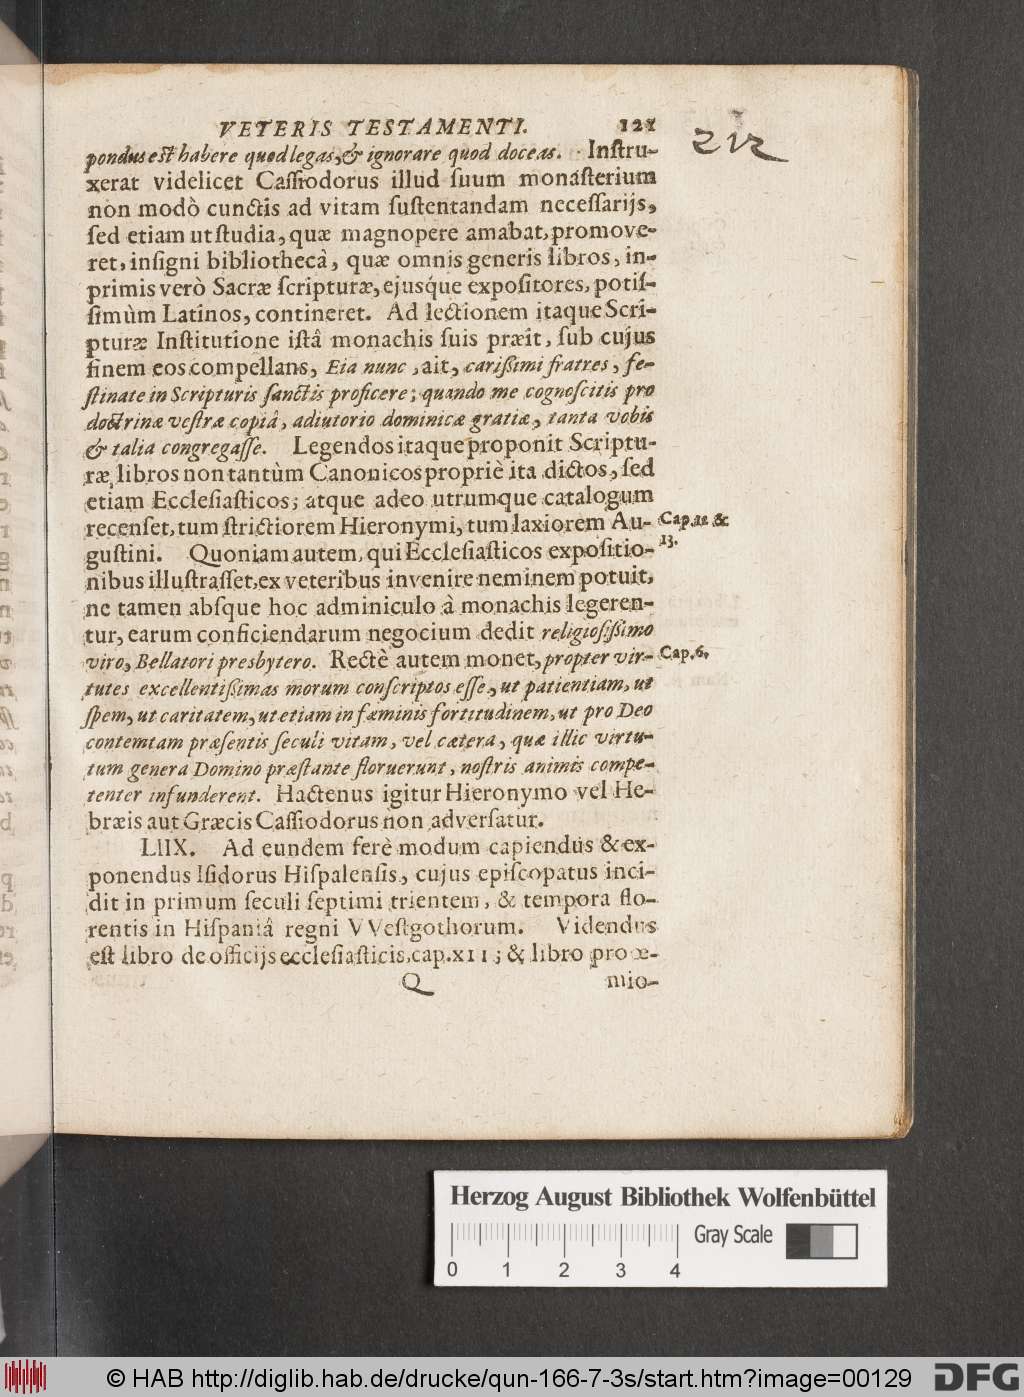 VETERIS TESTAMENTI. 121
212
pondus est habere quod legas, & ignorare quod doceas. Instru-
xerat videlicet Cassiodorus illud suum monasterium
non modò cunctis ad vitam sustentandam necessarijs,
sed etiam ut studia, quæ magnopere amabat, promove-
ret, insigni bibliothecâ, quæ omnis generis libros, in-
primis verò Sacræ scripturæ, ejusque expositores, potis-
simùm Latinos, contineret. Ad lectionem itaque Scri-
pturæ Institutione istâ monachis suis præit, sub cujus
finem eos compellans, Eia nunc, ait, carißimi fratres, fe-
stinate in Scripturis sanctis proficere; quando me cognoscitis pro
doctrinæ vestræ copiâ, adiutorio dominicæ gratiæ, tanta vobis
& talia congregasse. Legendos itaque proponit Scriptu-
ræ libros non tantùm Canonicos propriè ita dictos, sed
etiam Ecclesiasticos; atque adeo utrumque catalogum
recenset, tum strictiorem Hieronymi, tum laxiorem Au- Cap. 12 &
gustini. Quoniam autem, qui Ecclesiasticos expositio- 13.
nibus illustrasset, ex veteribus invenire neminem potuit,
ne tamen absque hoc adminiculo à monachis legeren-
tur, earum conficiendarum negocium dedit religiosißimo
viro, Bellatori presbytero. Rectè autem monet, propter vir- Cap. 6.
tutes excellentißimas morum conscriptos esse, ut patientiam, ut
spem, ut caritatem, ut etiam in fæminis fortitudinem, ut pro Deo
contemtam præsentis seculi vitam, vel cætera, quæ illic virtu-
tum genera Domino præstante floruerunt, nostris animis compe-
tenter infunderent. Hactenus igitur Hieronymo vel He-
bræis aut Græcis Cassiodorus non adversatur.
LIIX. Ad eundem ferè modum capiendus & ex-
ponendus Isidorus Hispalensis, cujus episcopatus inci-
dit in primum seculi septimi trientem, & tempora flo-
rentis in Hispaniâ regni VVestgothorum. Videndus
est libro de officijs ecclesiasticis, cap. XII; & libro proœ-
Q mio-
Herzog August Bibliothek Wolfenbüttel
Gray Scale
0 1 2 3 4
© HAB http://diglib.hab.de/drucke/qun-166-7-3s/start.htm?image=00129 DFG